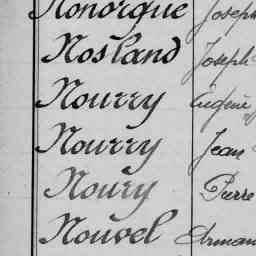 Nonorgue Joseph
Nosland Joseph
Nourry Eugène
Nourry Jean
Noury Pierre
Nouvel Arman